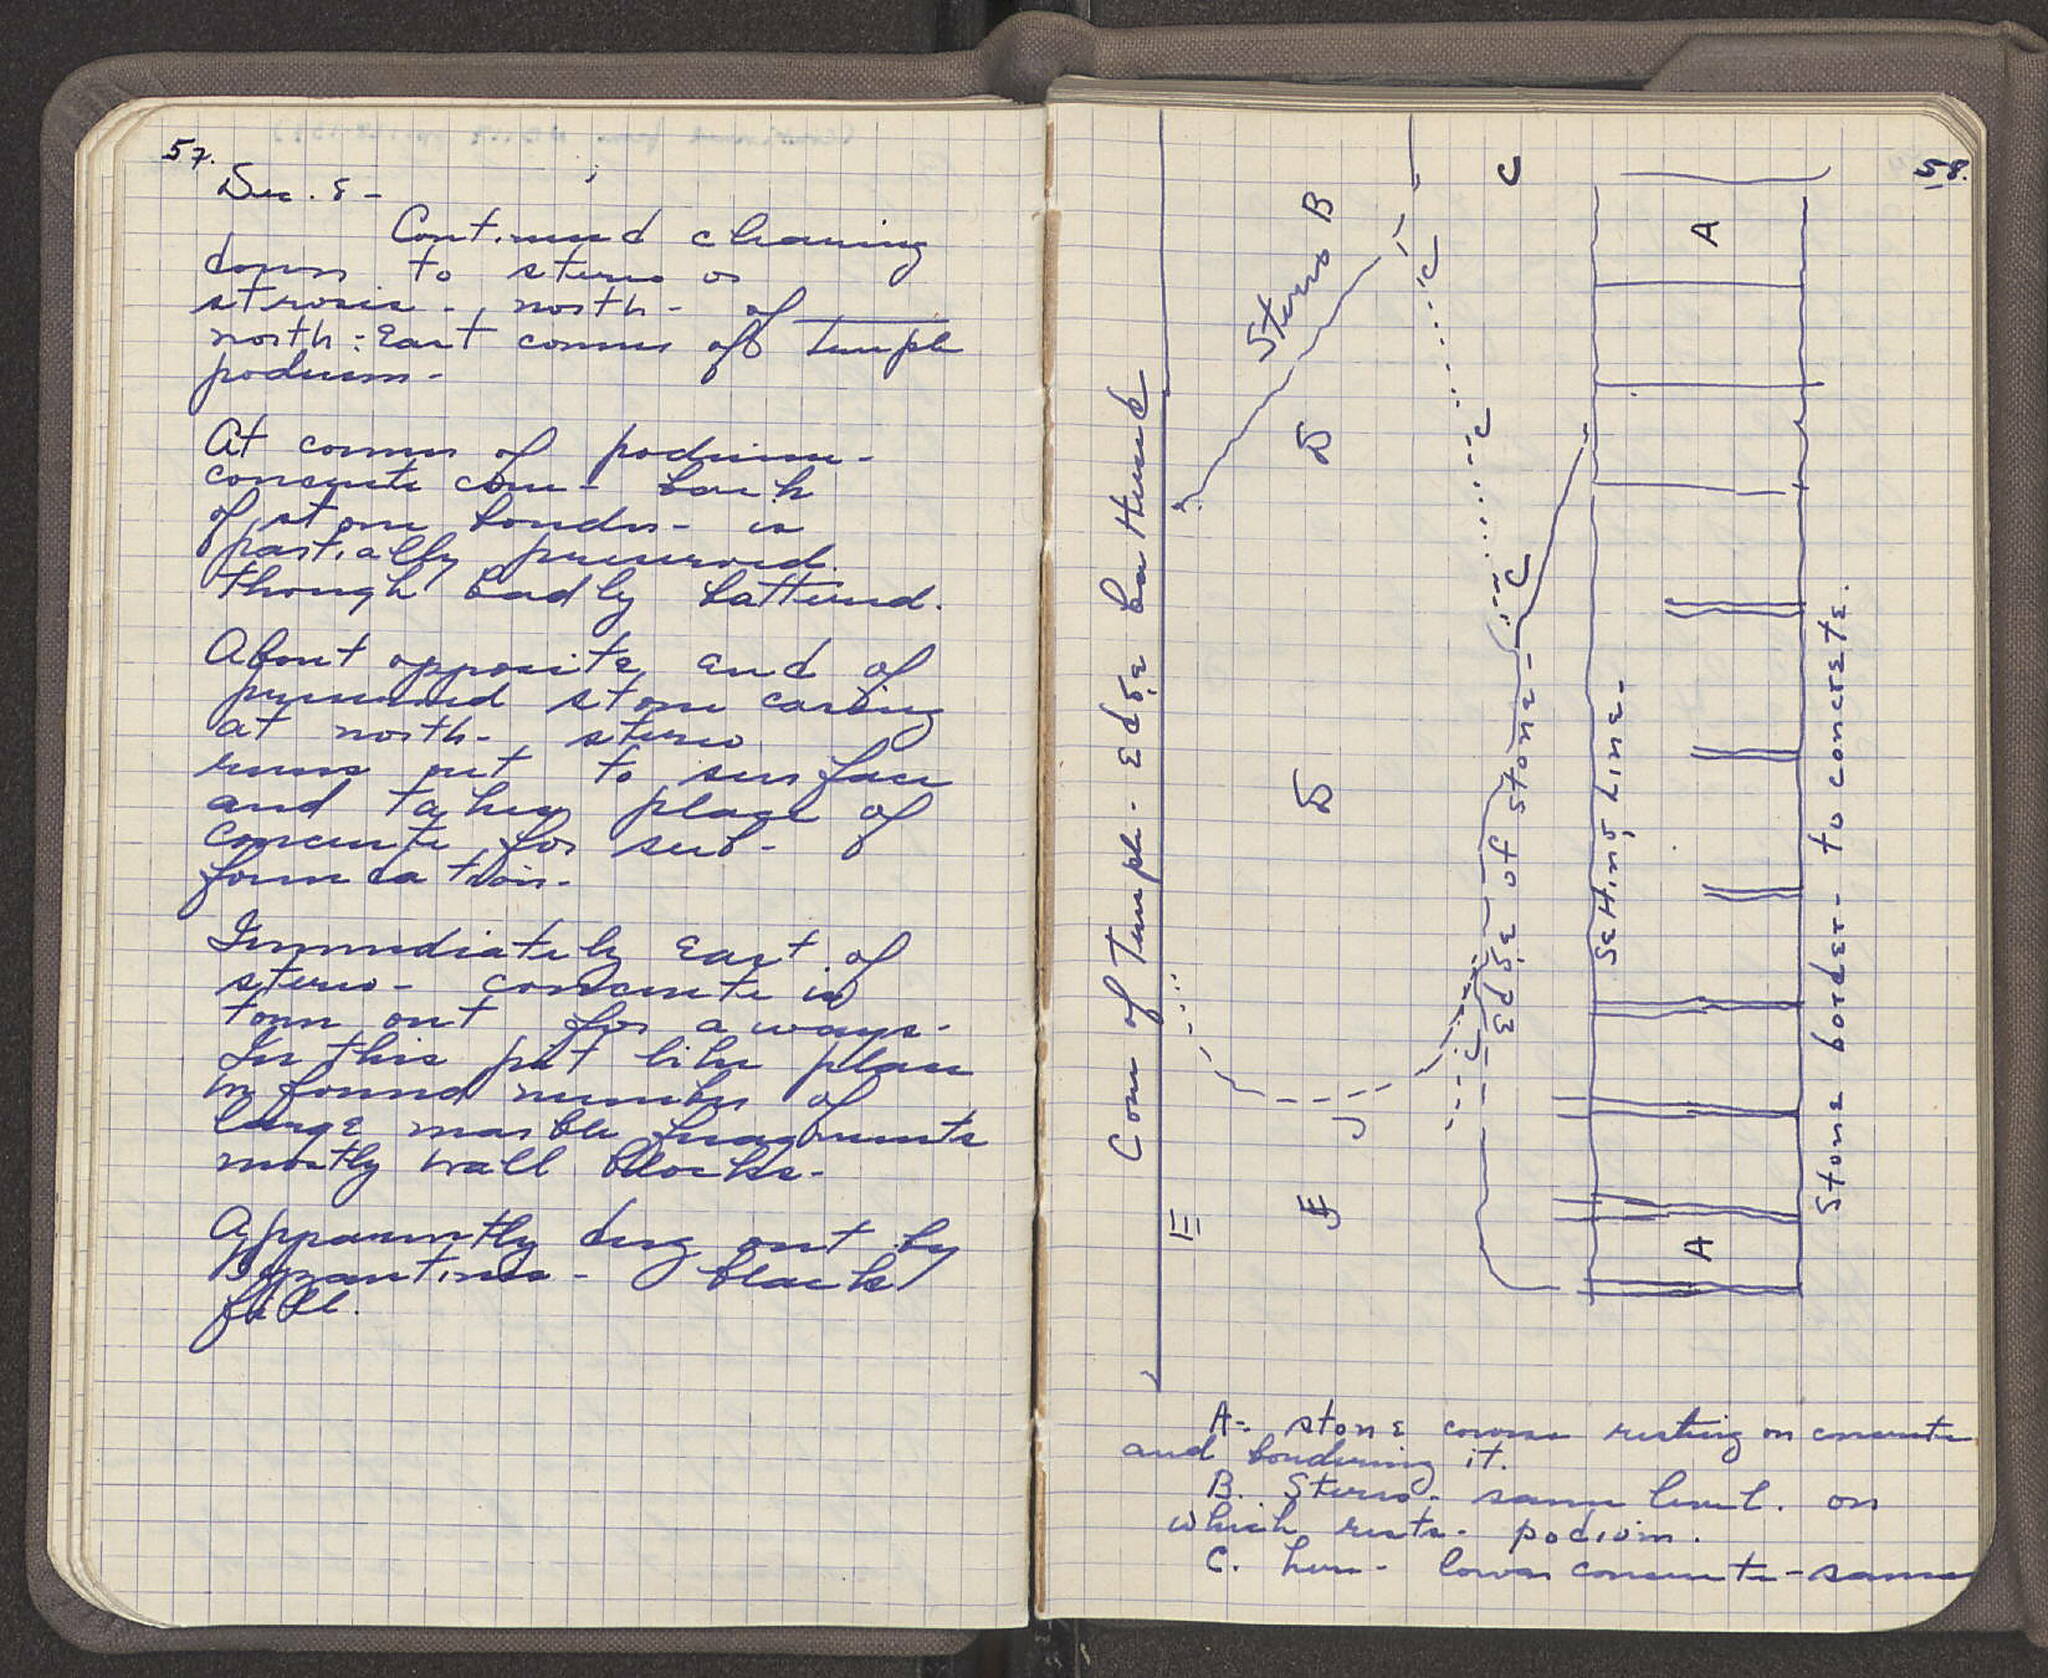 57.
Dec. 8 -
Continued cleaning
down to stereo or
strosis - north - of
north-East corner of temple
podium -
At corner of podium -
concrete core - back
of stone border - is
partially preserved.
though badly battered.
About opposite end of
preserved stone casing
at north - stereo
runs out to surface
and takes place of
concrete for sub-
foundation -
Immediately East of
stereo - concrete is
torn out for a ways -
In this pit like place
we found number of
large marble fragments
mostly wall blocks -
Apparently dug out by
Byzantines - black
fill.
58.
Core of Temple - Edge battered
Stereo B
C
A
C
D
C
C
D
Edge of stone -
Setting line -
Stone border - to concrete.
C
E
A
A - stone course resting on concrete
and bordering it.
B. Stereo - same level. on
which rests - podium.
C. here - lower concrete - same